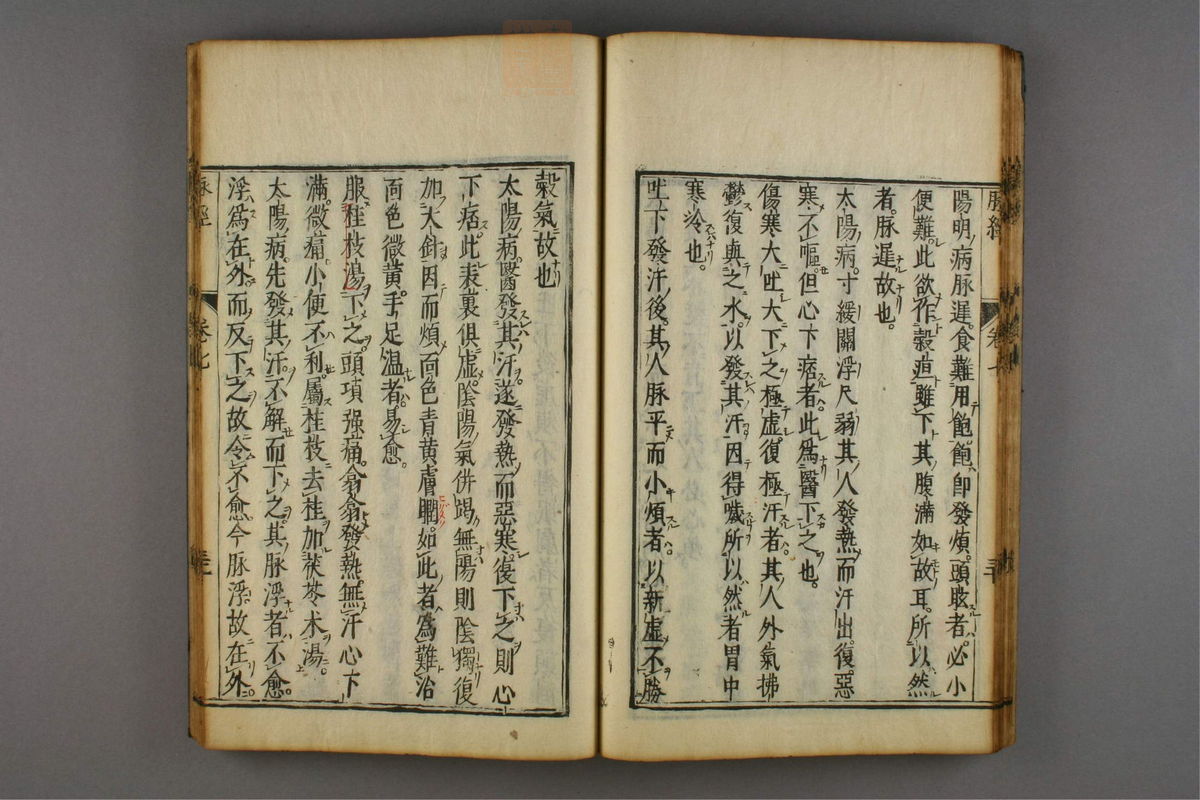 陽明病脉遲食難用飽飽即發煩頭眩者必小
便難此欲作穀疸雖下其腹滿如故耳所以然
者脉遲故也
太陽病寸緩關浮尺弱其人發熱而汗出復惡
寒不嘔但心下痞者此爲醫下之也
傷寒大吐大下之極虛復極汗者其人外氣拂
鬱復與之水以發其汗因得噦所以然者胃中
寒冷也
吐下發汗後其人脉平而小煩者以新虛不勝
穀氣故也
太陽病醫發其汗遂發熱而惡寒復下之則心
下痞此表裏俱虛陰陽氣併竭無陽則陰獨復
加火針因而煩面色青黄膚瞤如此者爲難治
面色微黄手足温者易愈
服桂枝湯下之頭項强痛翕翕發熱無汗心下
滿微痛小便不利屬桂枝去桂加茯苓术湯
太陽病先發其汗不解而下之其脉浮者不愈
浮爲在外而反下之故令不愈今脉浮故在外
脉經
卷七